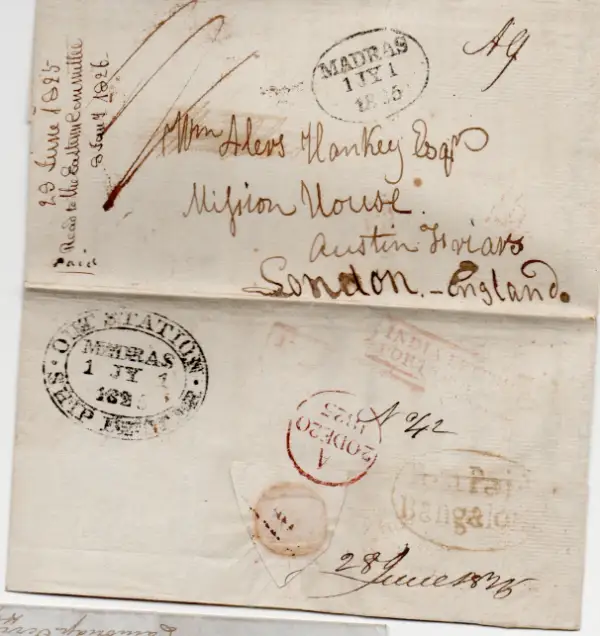 29 June 1825
Read to the Eastern Committee
3 Jany 1826.
Paid
MADRAS
1 JY 1
1825
Wm Alers Hankey Esqr
Mission House.
Austin Friars
London. - England.
OUT STATION
SHIP LETTER
MADRAS
1 JY 1
1825
INDIA LETTER
A
20DE20
1825
No/2
Bangalo
28 June 1825